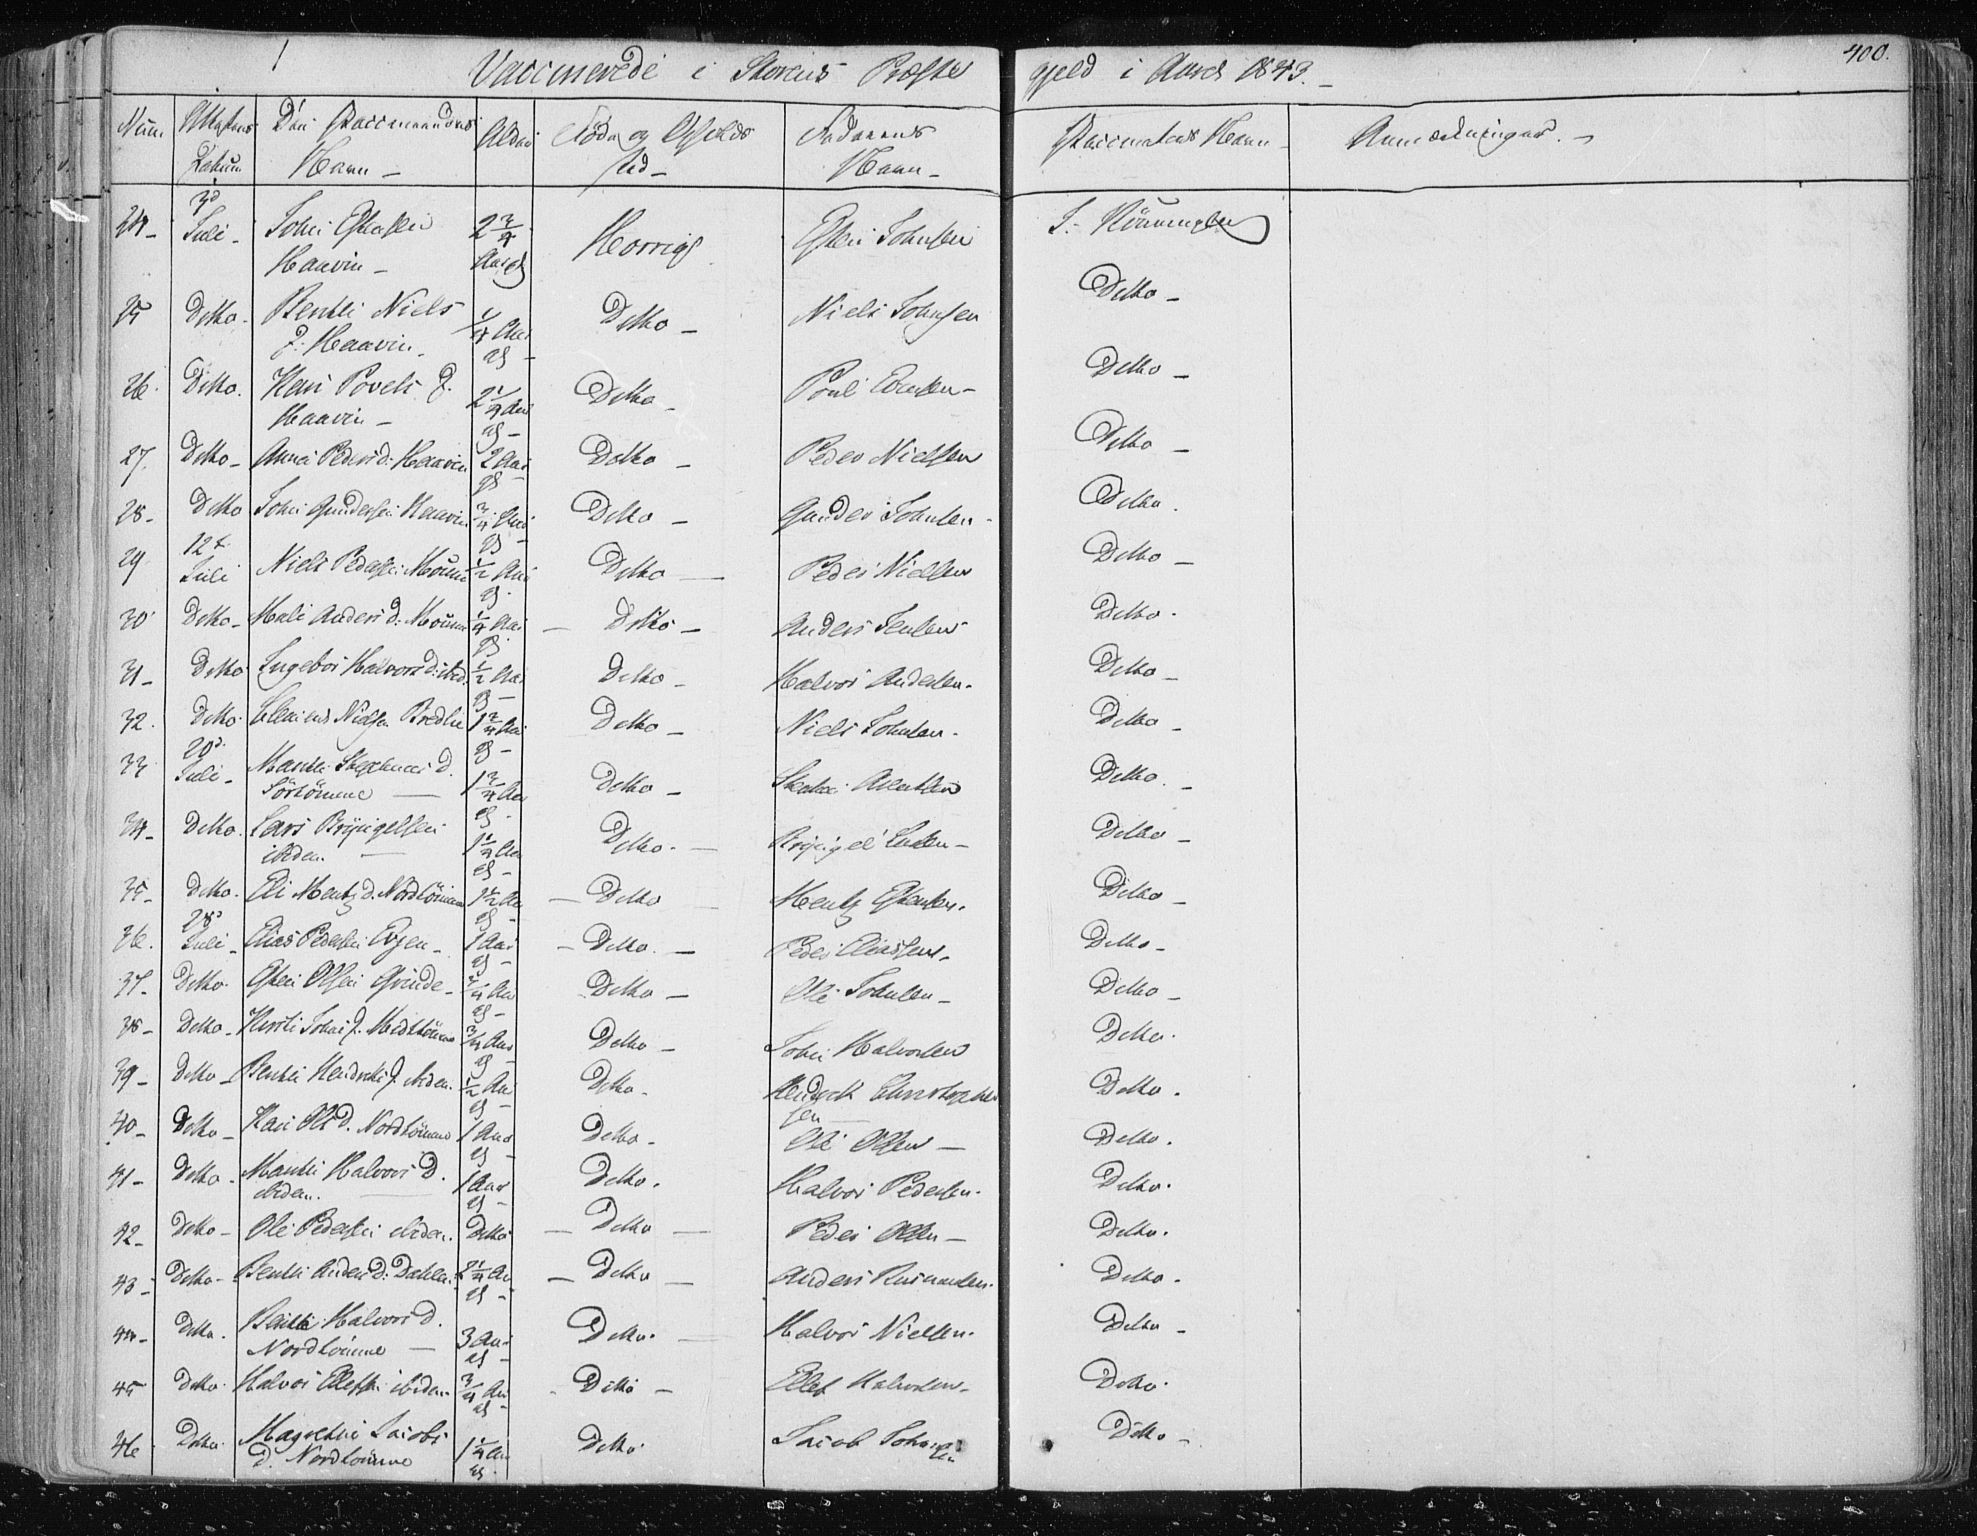 400.
Vaccinerede i Størens Præste gjeld i Aaret 1843.
Num. Attestens Datum Den Vaccineredes Navn Alder Føde og Opholds sted Faderens Navn Vaccinateurs Navn Anmærkninger.
24 3d Juli John Estensen Haavin 2 3/4 Aar gl Horrigs Esten Johnsen
25 Ditto Berithe Niels D: Haavin 1/4 Aar gl Ditto Niels Johnsen Ditto
26 Ditto. Kari Povels D. Haavin 2 1/4 Aar gl Ditto Ditto
27. Ditto Anne Peders d: Haavin 2 Aar gl Ditto Peder Nielsen Ditto
28 Ditto John Gundersen Haavin 3/4 Aar gl Ditto Gunder Johnsen Ditto
29 12t Juli Niels Pedersen 1/2 Aar gl Ditto Peder Nielsen Ditto
30 Ditto Mali Anders d: 1/4 Aar gl Ditto Anders Jensen Ditto
31 Ditto Ingebor Halvors d: ibid. 1/2 Aar gl Ditto Halvor Andersen. Ditto
32. Ditto Nielsen Bredlie 1 3/4 Aar gl Ditto Niels Johnsen. Ditto
33 20d Juli Marithe d. Sörtömme 1 3/4 Aar gl Ditto Ditto
34 Ditto. Lars Bryngelsen ibidem. 1 1/4 Aar gl Ditto. Bryngel Larsen Ditto
35 Ditto. Eli Mentz d. Nordtömme 1 1/2 Aar gl Ditto Mentz Estensen. Ditto
36. 28d Juli Elias Pedersen Evjen 1 Aar gl Ditto. Peder Eliassen. Ditto
37 Ditto. Esten Olsen Grinde 3/4 Aar gl Ditto Ole Johnsen Ditto
38 Ditto Kirsti Johns d. Midttömme 3/4 Aar gl Ditto John Halvorsen Ditto.
39 Ditto Berithe Hendrichs d. ibidem. 1/2 Aar gl Ditto. Hendrich Christopher sen Ditto.
40 Ditto Kari Ols d. Nordtömme 1 Aar gl Ditto. Ole Olsen Ditto.
41 Ditto. Marithe Halvors D. ibidem. 1 Aar gl Ditto. Halvor Pedersen. Ditto.
42 Ditto Ole Pedersen ibidem. Ditto Ditto Peder Olsen Ditto.
43 Ditto Berithe Anders D: Dahlen. 2 1/4 Aar gl Ditto Anders Rasmusen. Ditto.
44 Ditto. Berithe Halvors d. Nordtömme 3 Aar gl Ditto. Halvor Nielsen. Ditto
45 Ditto. Halvor Ellefsen ibidem 3/4 Aar gl Ditto Ellef Halvorsen. Ditto.
46 Ditto. Magrethe Jacobs d. Nordtömme 1 1/4 Aar gl. Ditto. Jacob Johnsen Ditto